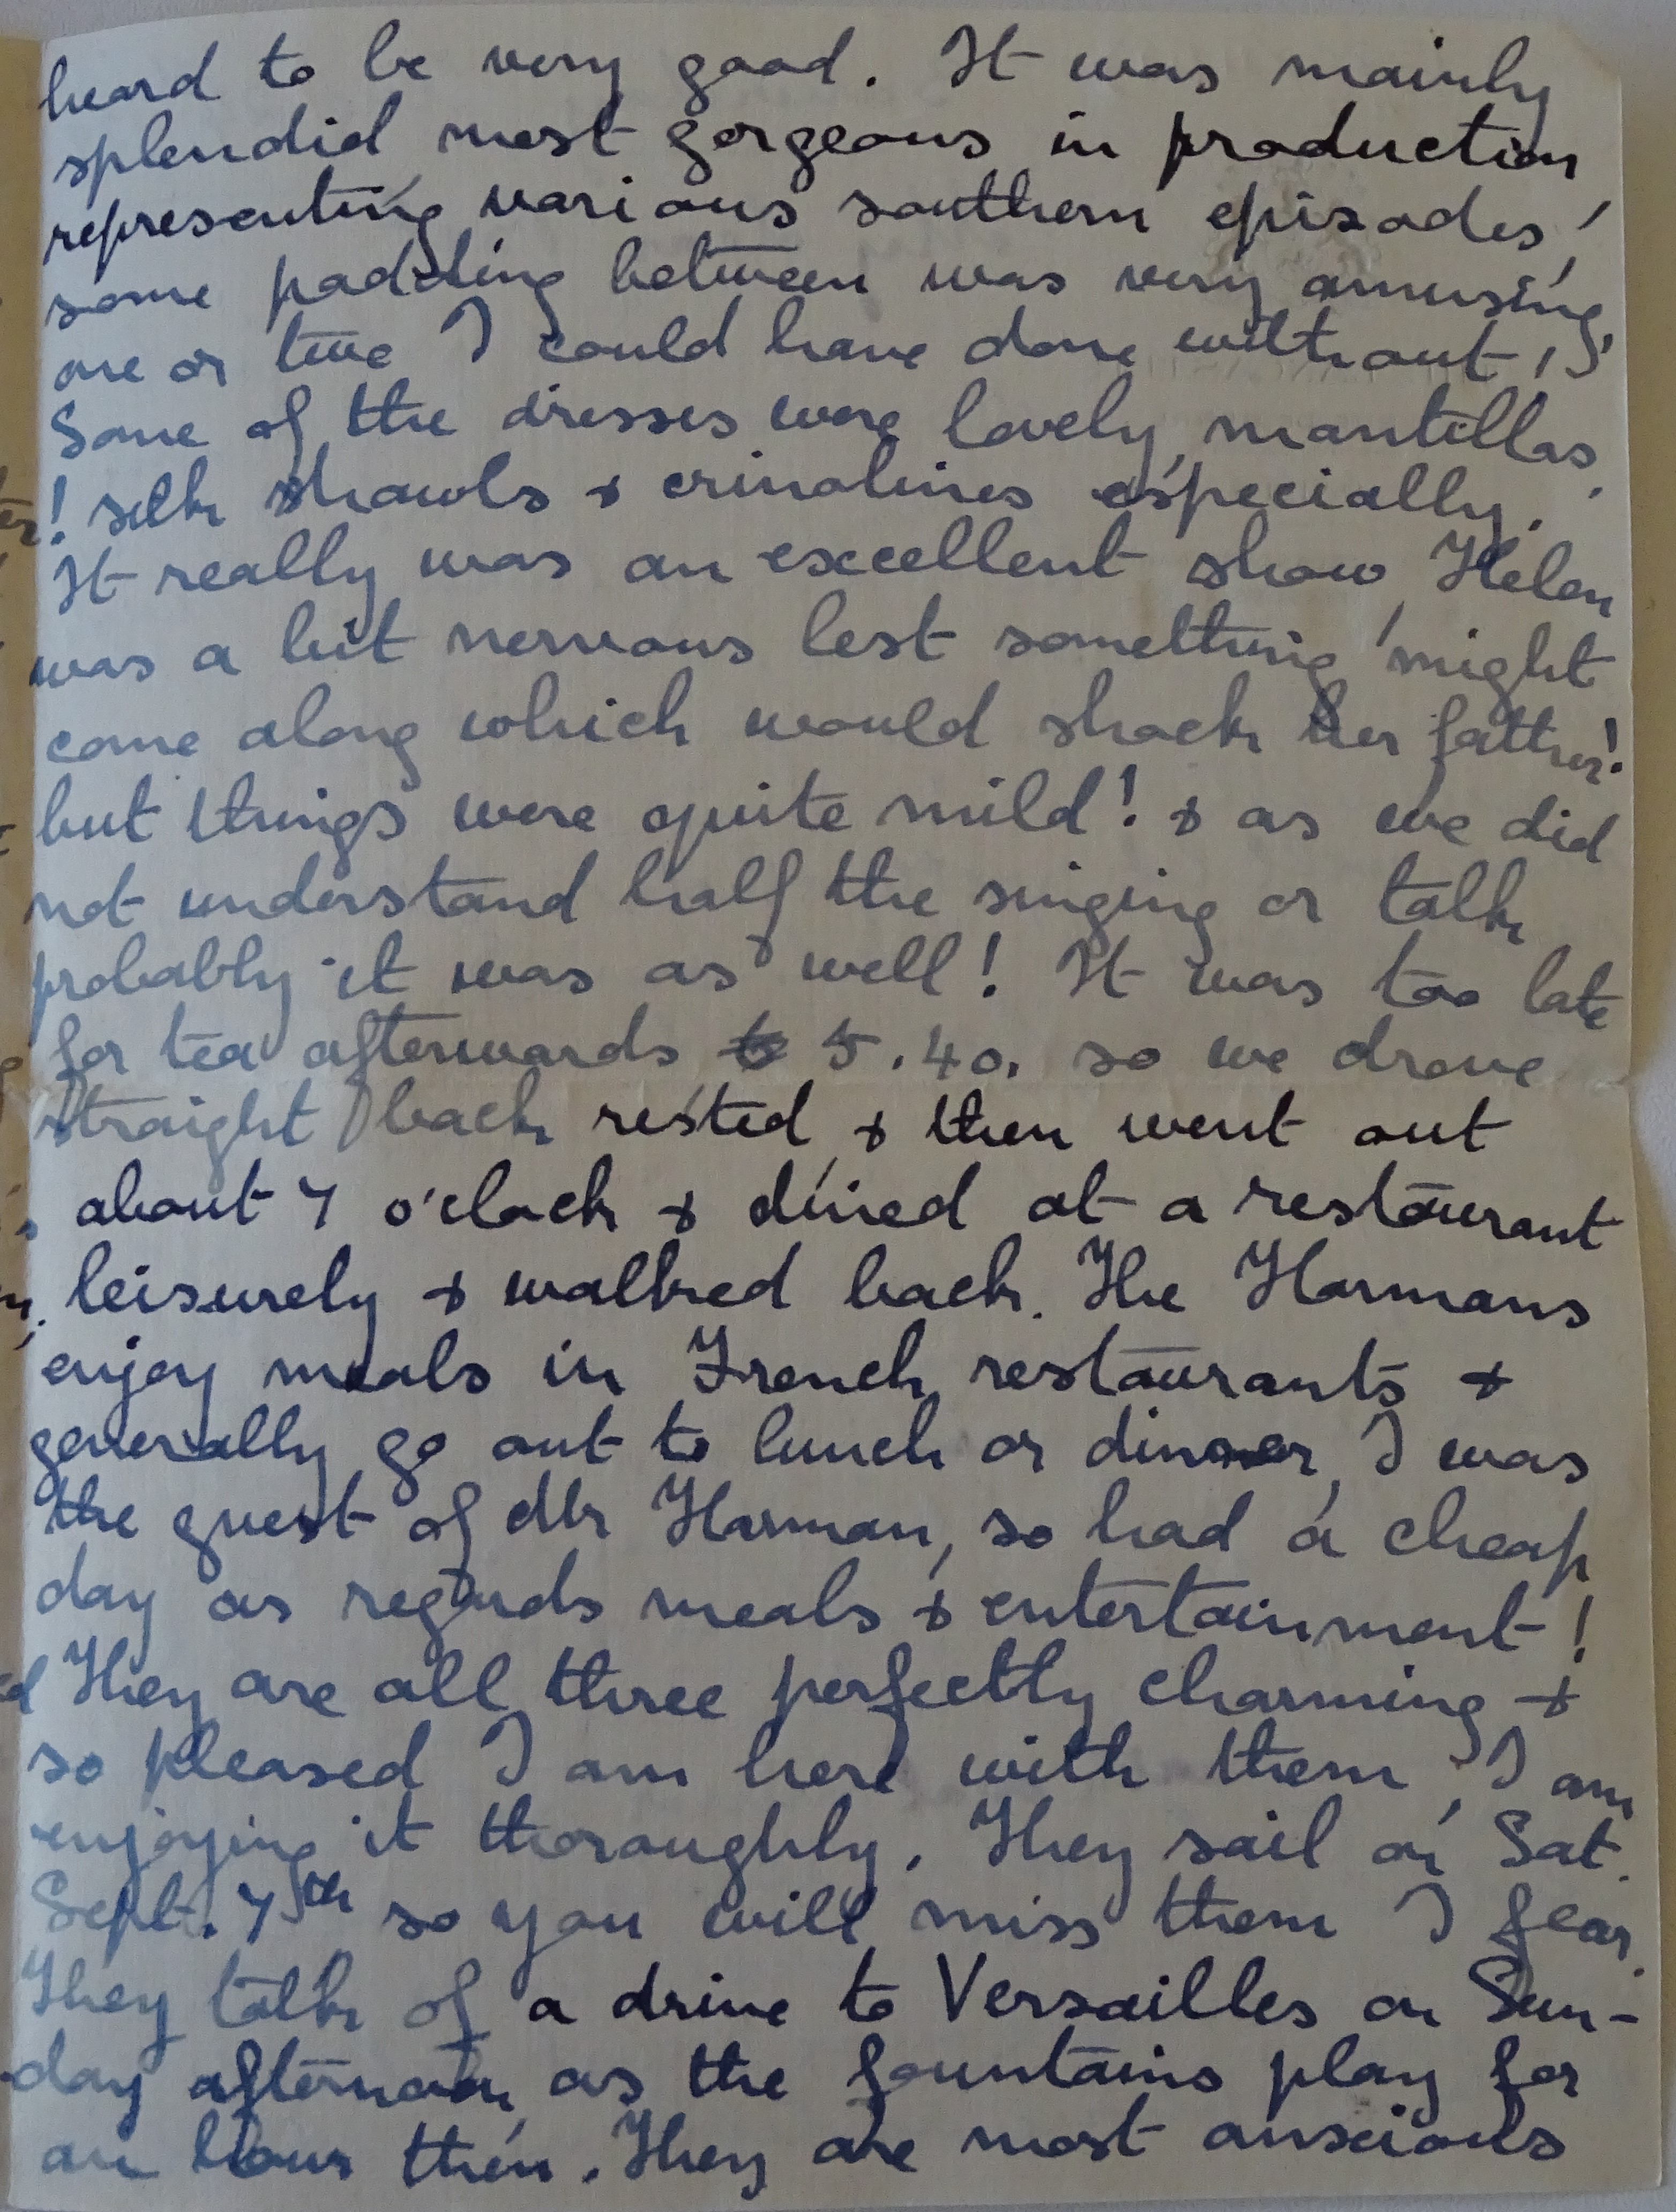 heard to be very good. It was mainly
splendid most gorgeous in production
representing various southern episodes,
some padding between was very amusing,
one or two I could have done without,
Some of the dresses were lovely, mantillas,
! silk shawls & crinolines especially.
It really was an excellent show, Helen
was a bit nervous lest something might
come along which would shock her father!
but things were quite mild! & as we did
not understand half the singing or talk
probably it was as well! It was too late
for tea afterwards 5.40. so we drove
straight back rested, & then went out
about 7 o'clock & dined at a restaurant
leisurely & walked back. The Harmans
enjoy meals in French restaurants &
generally go out to lunch or dinner, I was
the guest of Mr Harman, so had a cheap
day as regards meals & entertainment!
They are all three perfectly charming &
so pleased I am here with them, I am
enjoying it thoroughly. They sail on Sat.
Sept. 7th so you will miss them I fear.
They talk of a drive to Versailles on Sun-
day afternoon, as the fountains play for
an hour then. They are most anxious